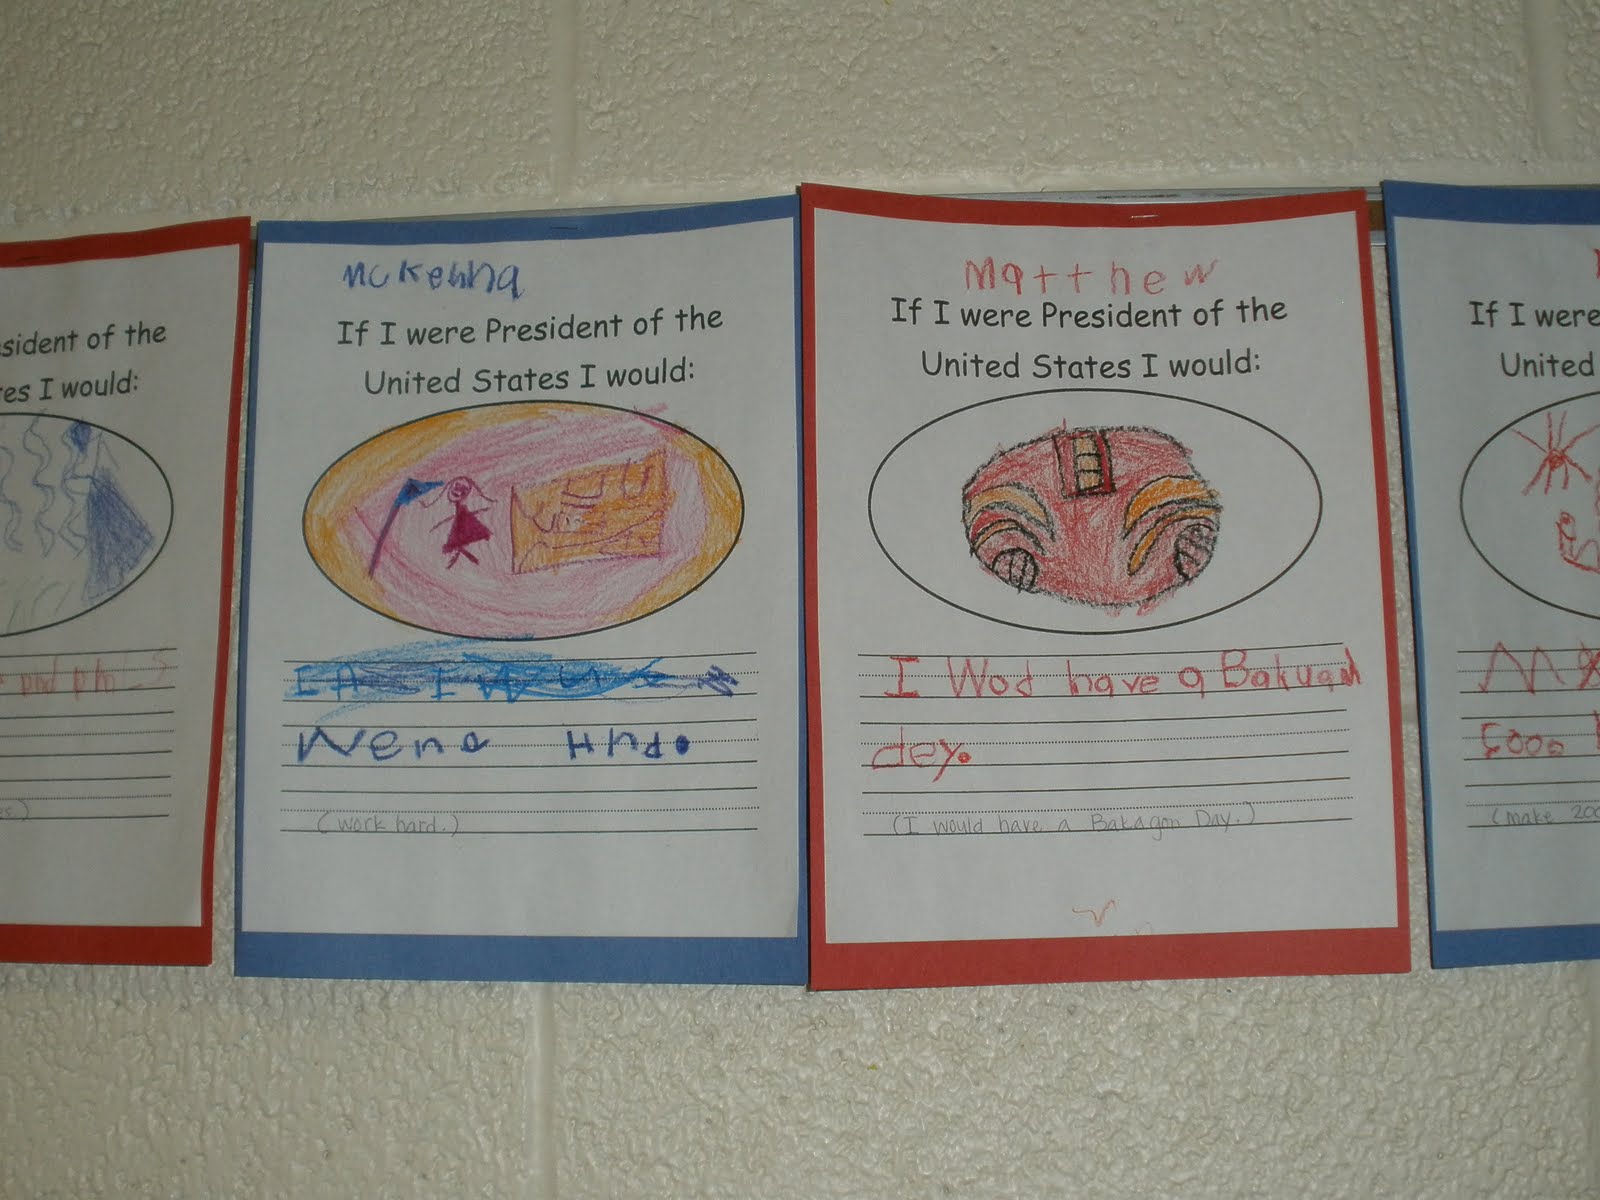 sident of the
es I would:
McKenna
If I were President of the
United States I would:
(work hard.)
Matthew
If I were President of the
United States I would:
I Wod have a Bakugan
dey.
(I would have a Bakagon Day.)
If I were
United
(make 200